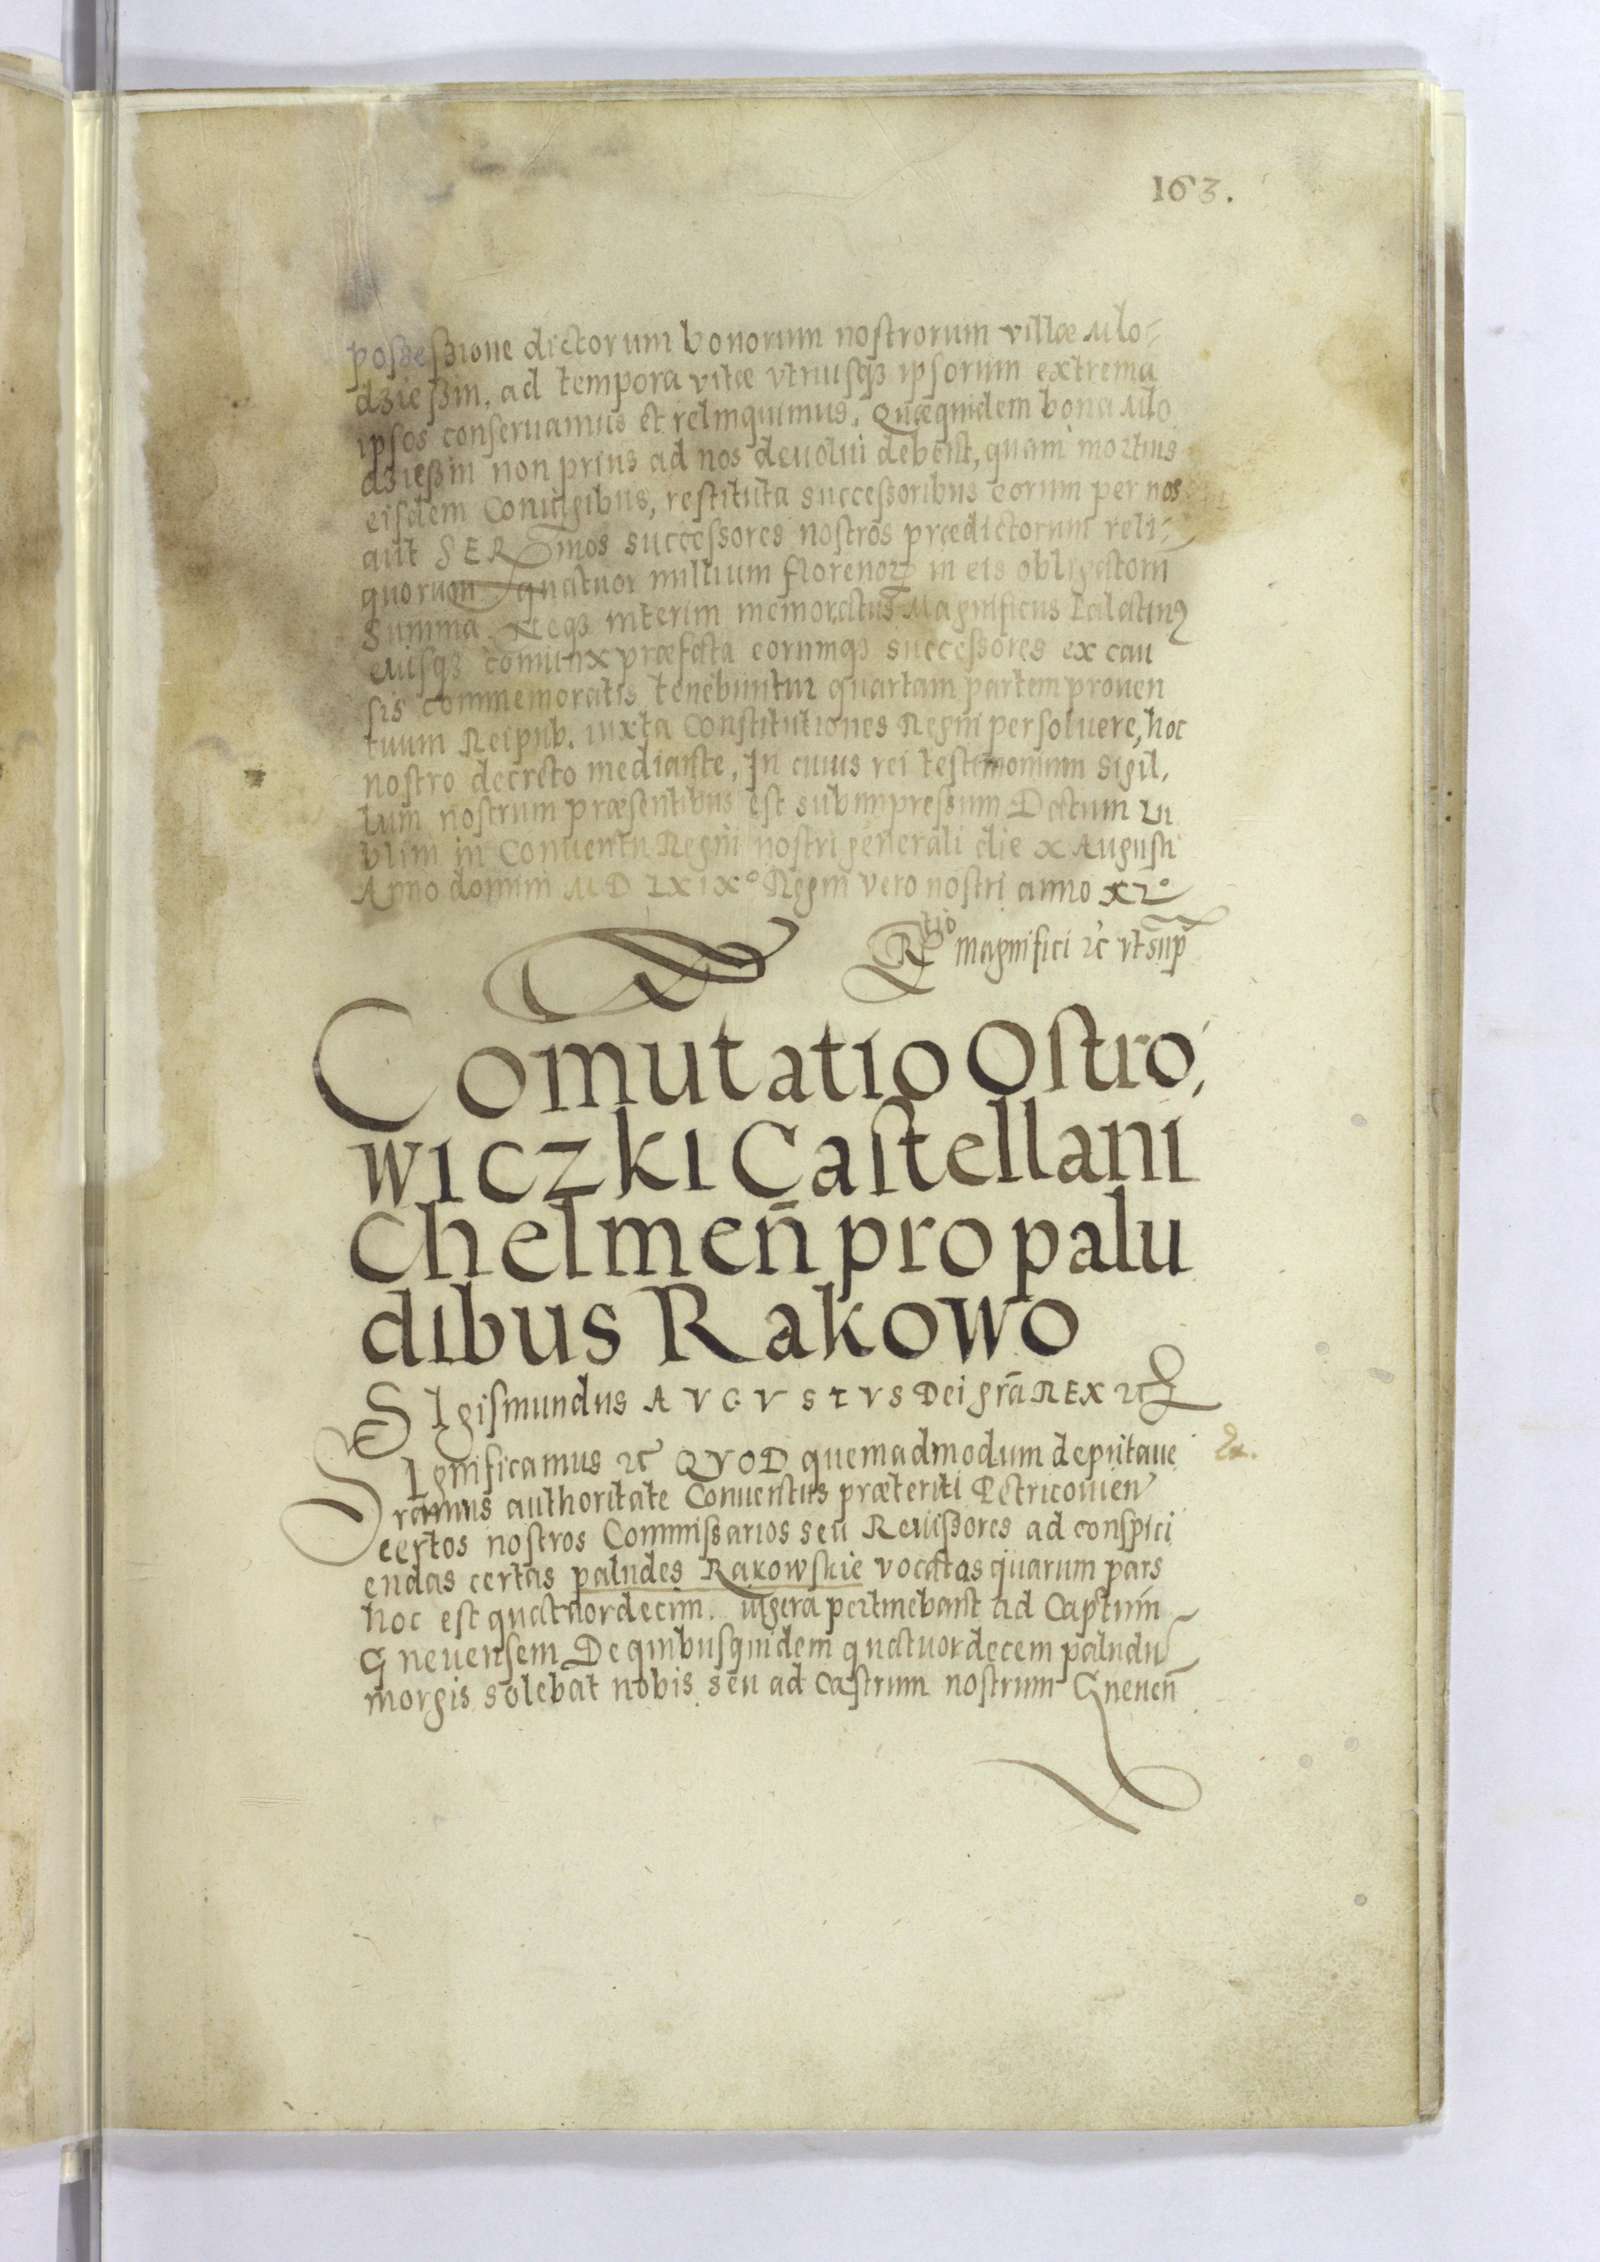 163.
posseßione dictorum bonorum nostrorum villæ Mlo-
dzießin, ad tempora vitæ vtriusqz ipsorum extrema
ipsos conseruamus et relinquimus. Quæquidem bona Mlo
dzießin non prius ad nos deuolui debent, quam mortuis
eisdem Coniugibus, restituta successoribus eorum per nos
aut SERmos successores nostros prædictorum reli-
quorum quatuor millium florenorz in eis obligatorum
summa. Neqz interim memoratus Magnificus Palatin9
eiusqz coniunx præfata eorumqz successores ex cau
sis commemoratis tenebuntur quartam partem prouen
tuum Reipub. iuxta Constitutiones Regni persoluere, hoc
nostro decreto mediante. In cuius rei testimonium sigil,
lum nostrum præsentibus est subimpressum Datum Lu
blini in Conuentu Regni nostri generali die X Augusti
Anno domini MDLXIXo Regni vero nostri anno XLo
Rtio magnifici etc vt sup
Comutatio Ostro,
wiczki Castellani
Chelmen̄ pro palu
dibus Rakowo
SIgismundus AVGVSTVS Dei gr̄a REX etc
SIgnificamus etc QVOD quemadmodum deputaue
ramus authoritate Conuentus præteriti Petricouien
certos nostros Commissarios seu Reuissores ad conspici
endas certas paludes Rakowskie vocatas quarum pars
hoc est quatuordecim iugera pertinebant ad Capitum
Gneuensem De quibusquidem quatuordecem paludu
morgis solebat nobis seu ad castrum nostrum Gneuen̄